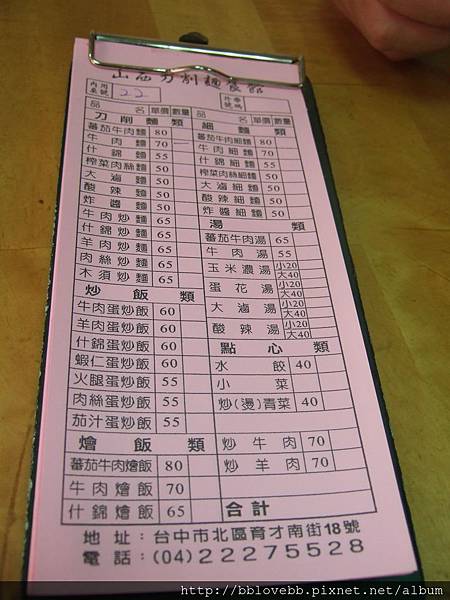 山西刀削麵餐館
內用桌號 22 外帶號碼
品名 單價 數量
刀削麵類
蕃茄牛肉麵 80
牛肉麵 70
什錦麵 55
榨菜肉絲麵 50
大滷麵 50
酸辣麵 50
炸醬麵 50
牛肉炒麵 65
什錦炒麵 65
羊肉炒麵 65
肉絲炒麵 65
木須炒麵 65
炒飯類
牛肉蛋炒飯 60
羊肉蛋炒飯 60
什錦蛋炒飯 60
蝦仁蛋炒飯 60
火腿蛋炒飯 55
肉絲蛋炒飯 55
茄汁蛋炒飯 55
燴飯類
蕃茄牛肉燴飯 80
牛肉燴飯 70
什錦燴飯 65
品名 單價 數量
細麵類
蕃茄牛肉細麵 80
牛肉細麵 70
什錦細麵 55
榨菜肉絲細麵 50
大滷細麵 50
酸辣細麵 50
炸醬細麵 50
湯類
蕃茄牛肉湯 65
牛肉湯 55
玉米濃湯 小20 大40
蛋花湯 小20 大40
大滷湯 小20 大40
酸辣湯 小20 大40
點心類
水餃 40
小菜
炒(燙)青菜 40
炒牛肉 70
炒羊肉 70
合計
地址:台中市北區育才南街18號
電話:(04)22275528
http://bblovebb.pixnet.net/album